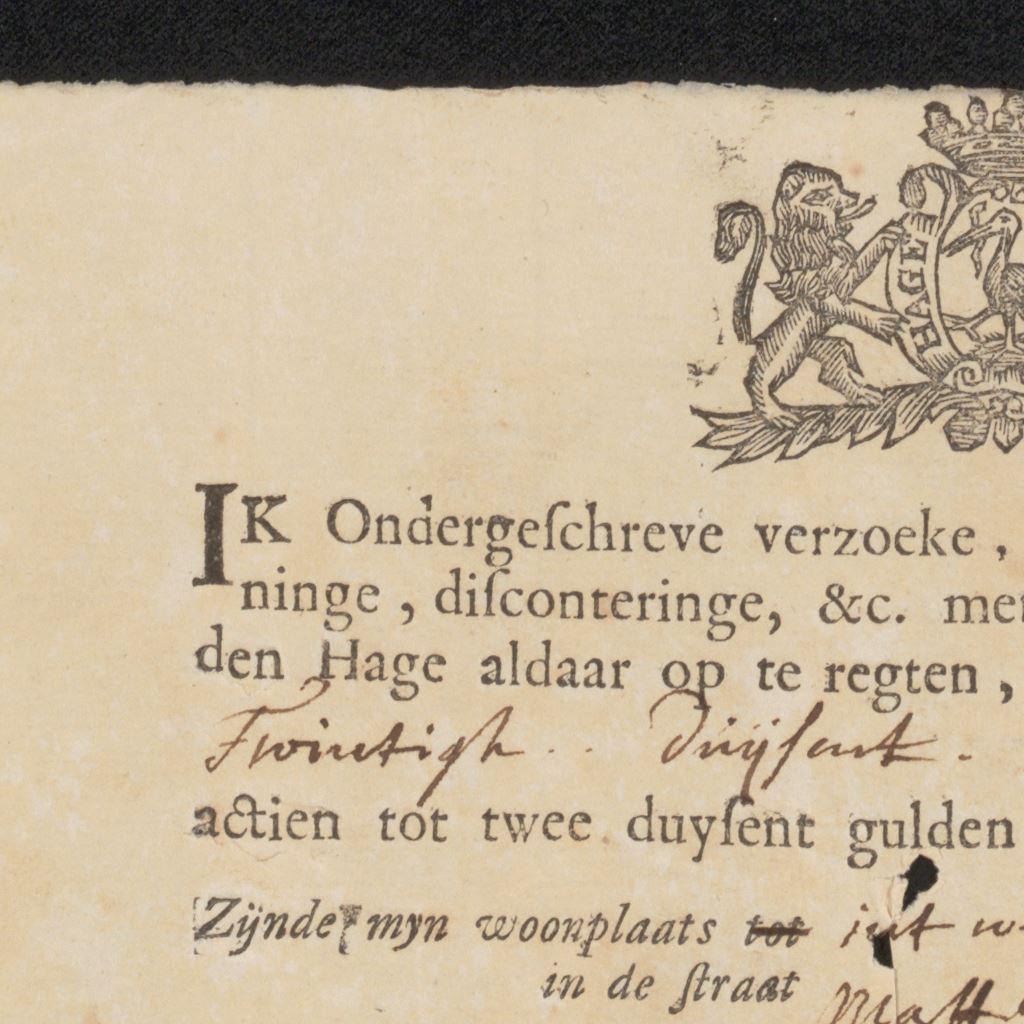 HAGE
IK Ondergeſchreve verzoeke,
ninge, diſconteringe, &c. met
den Hage aldaar op te regten,
Twintigh .. duÿſent.
actien tot twee duyſent gulden
Zÿnde myn woonplaats tot int
in de ſtraat